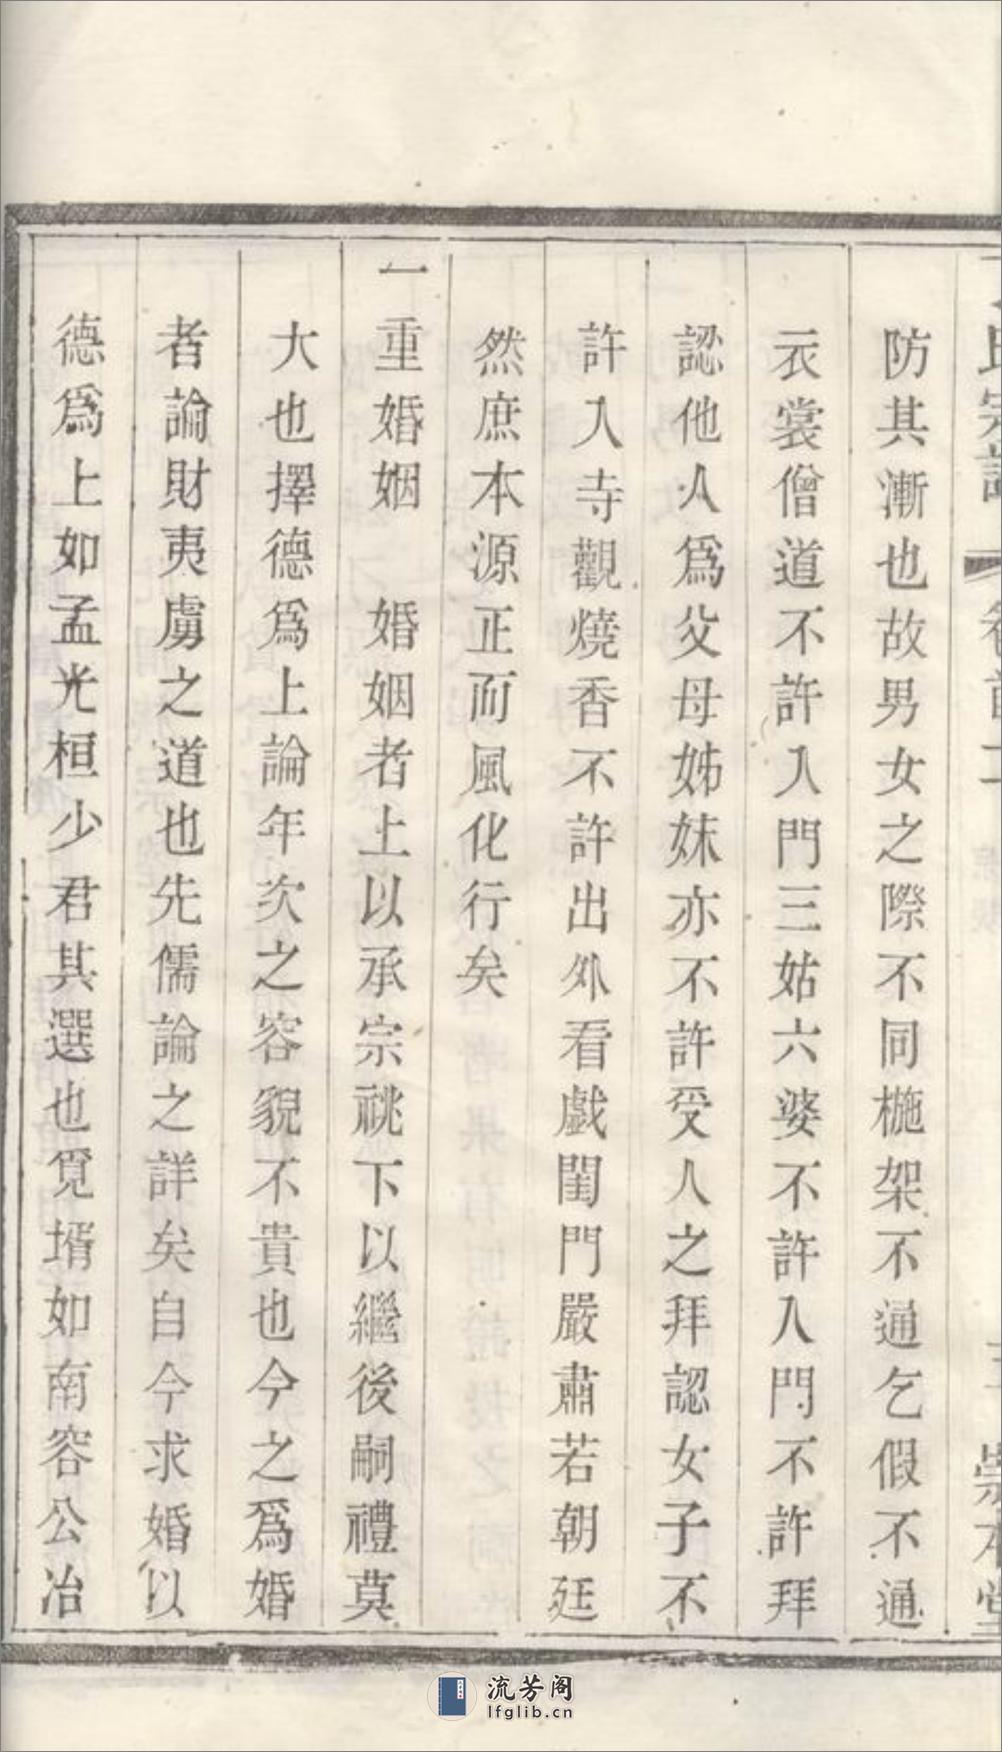 氏宗譜 卷首二 三 崇本堂
防其漸也故男女之際不同椸架不通乞假不通
衣裳僧道不許入門三姑六婆不許入門不許拜
認他人爲父母姊妹亦不許受人之拜認女子不
許入寺觀燒香不許出外看戲閨門嚴肅若朝廷
然庶本源正而風化行矣
一重婚姻 婚姻者上以承宗祧下以繼後嗣禮莫
大也擇德爲上論年次之容貌不貴也今之爲婚
者論財夷虜之道也先儒論之詳矣自今求婚以
德爲上如孟光桓少君其選也覓壻如南容公冶
流芳阁
lfglib.cn